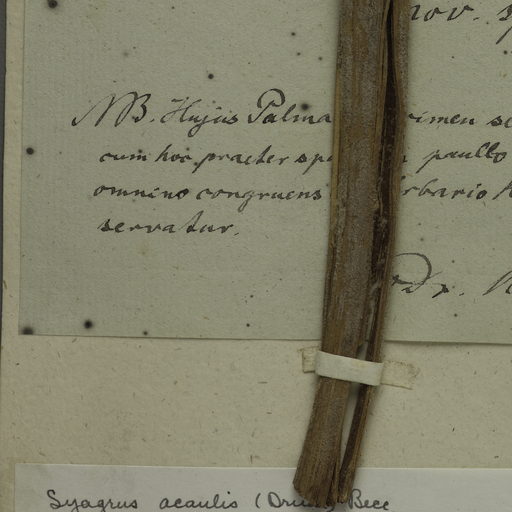 nov. s
NB. Hujus Palma imen se
cum hoc praeter sp paullo
omnino congruens rbario
servatur.
Dr.
Syagrus acaulis (Drude) Becc